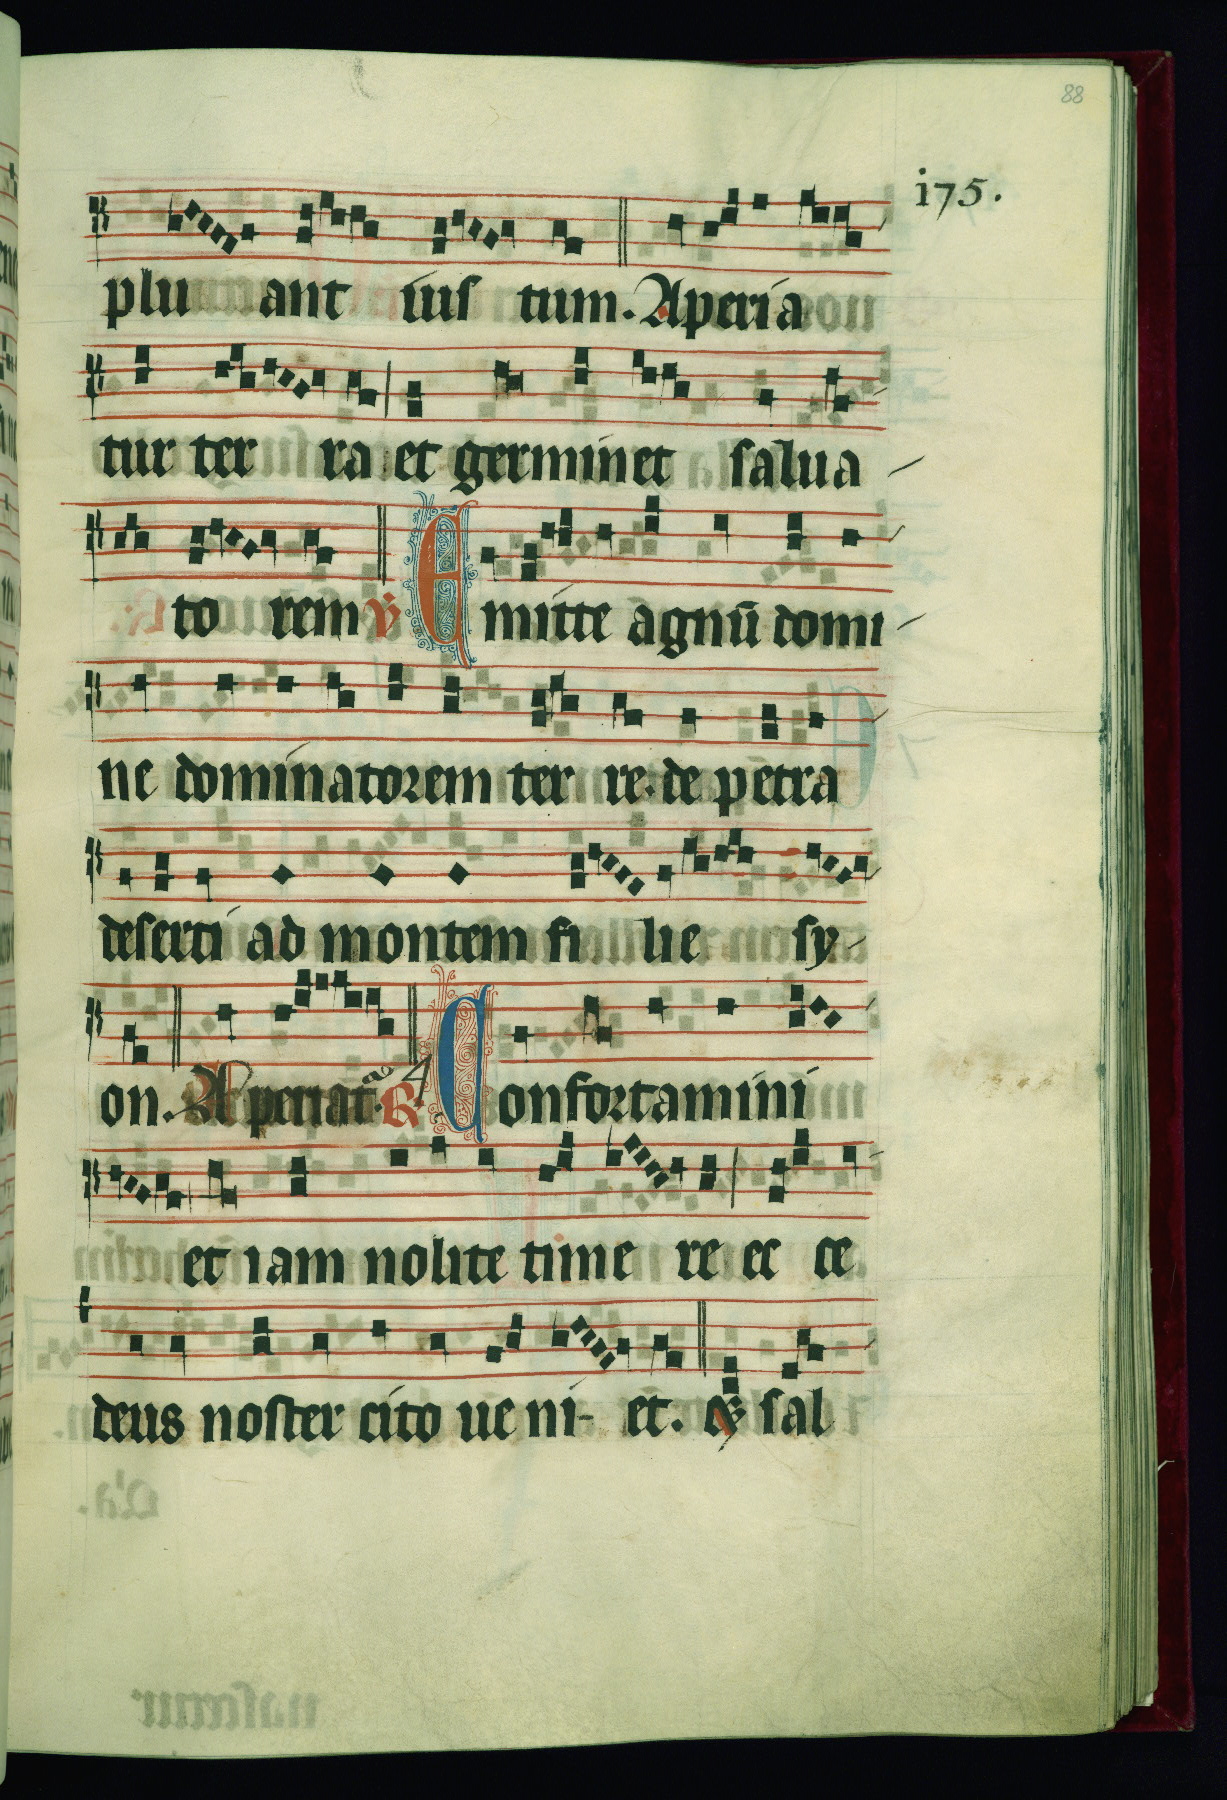 88
i75.
plu ant ius tum. Aperia
tur ter ra et germinet salua
to rem ℣ Emitte agnū domi
ne dominatorem ter re. de petra
deserti ad montem fi lie sy
on. Aperiat. ℟. 4 Confortamini
et iam nolite time re ec ce
deus noster cito ue ni- et. ℣ sal